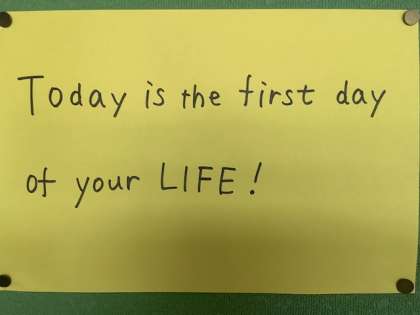 Today is the first day
of your LIFE!